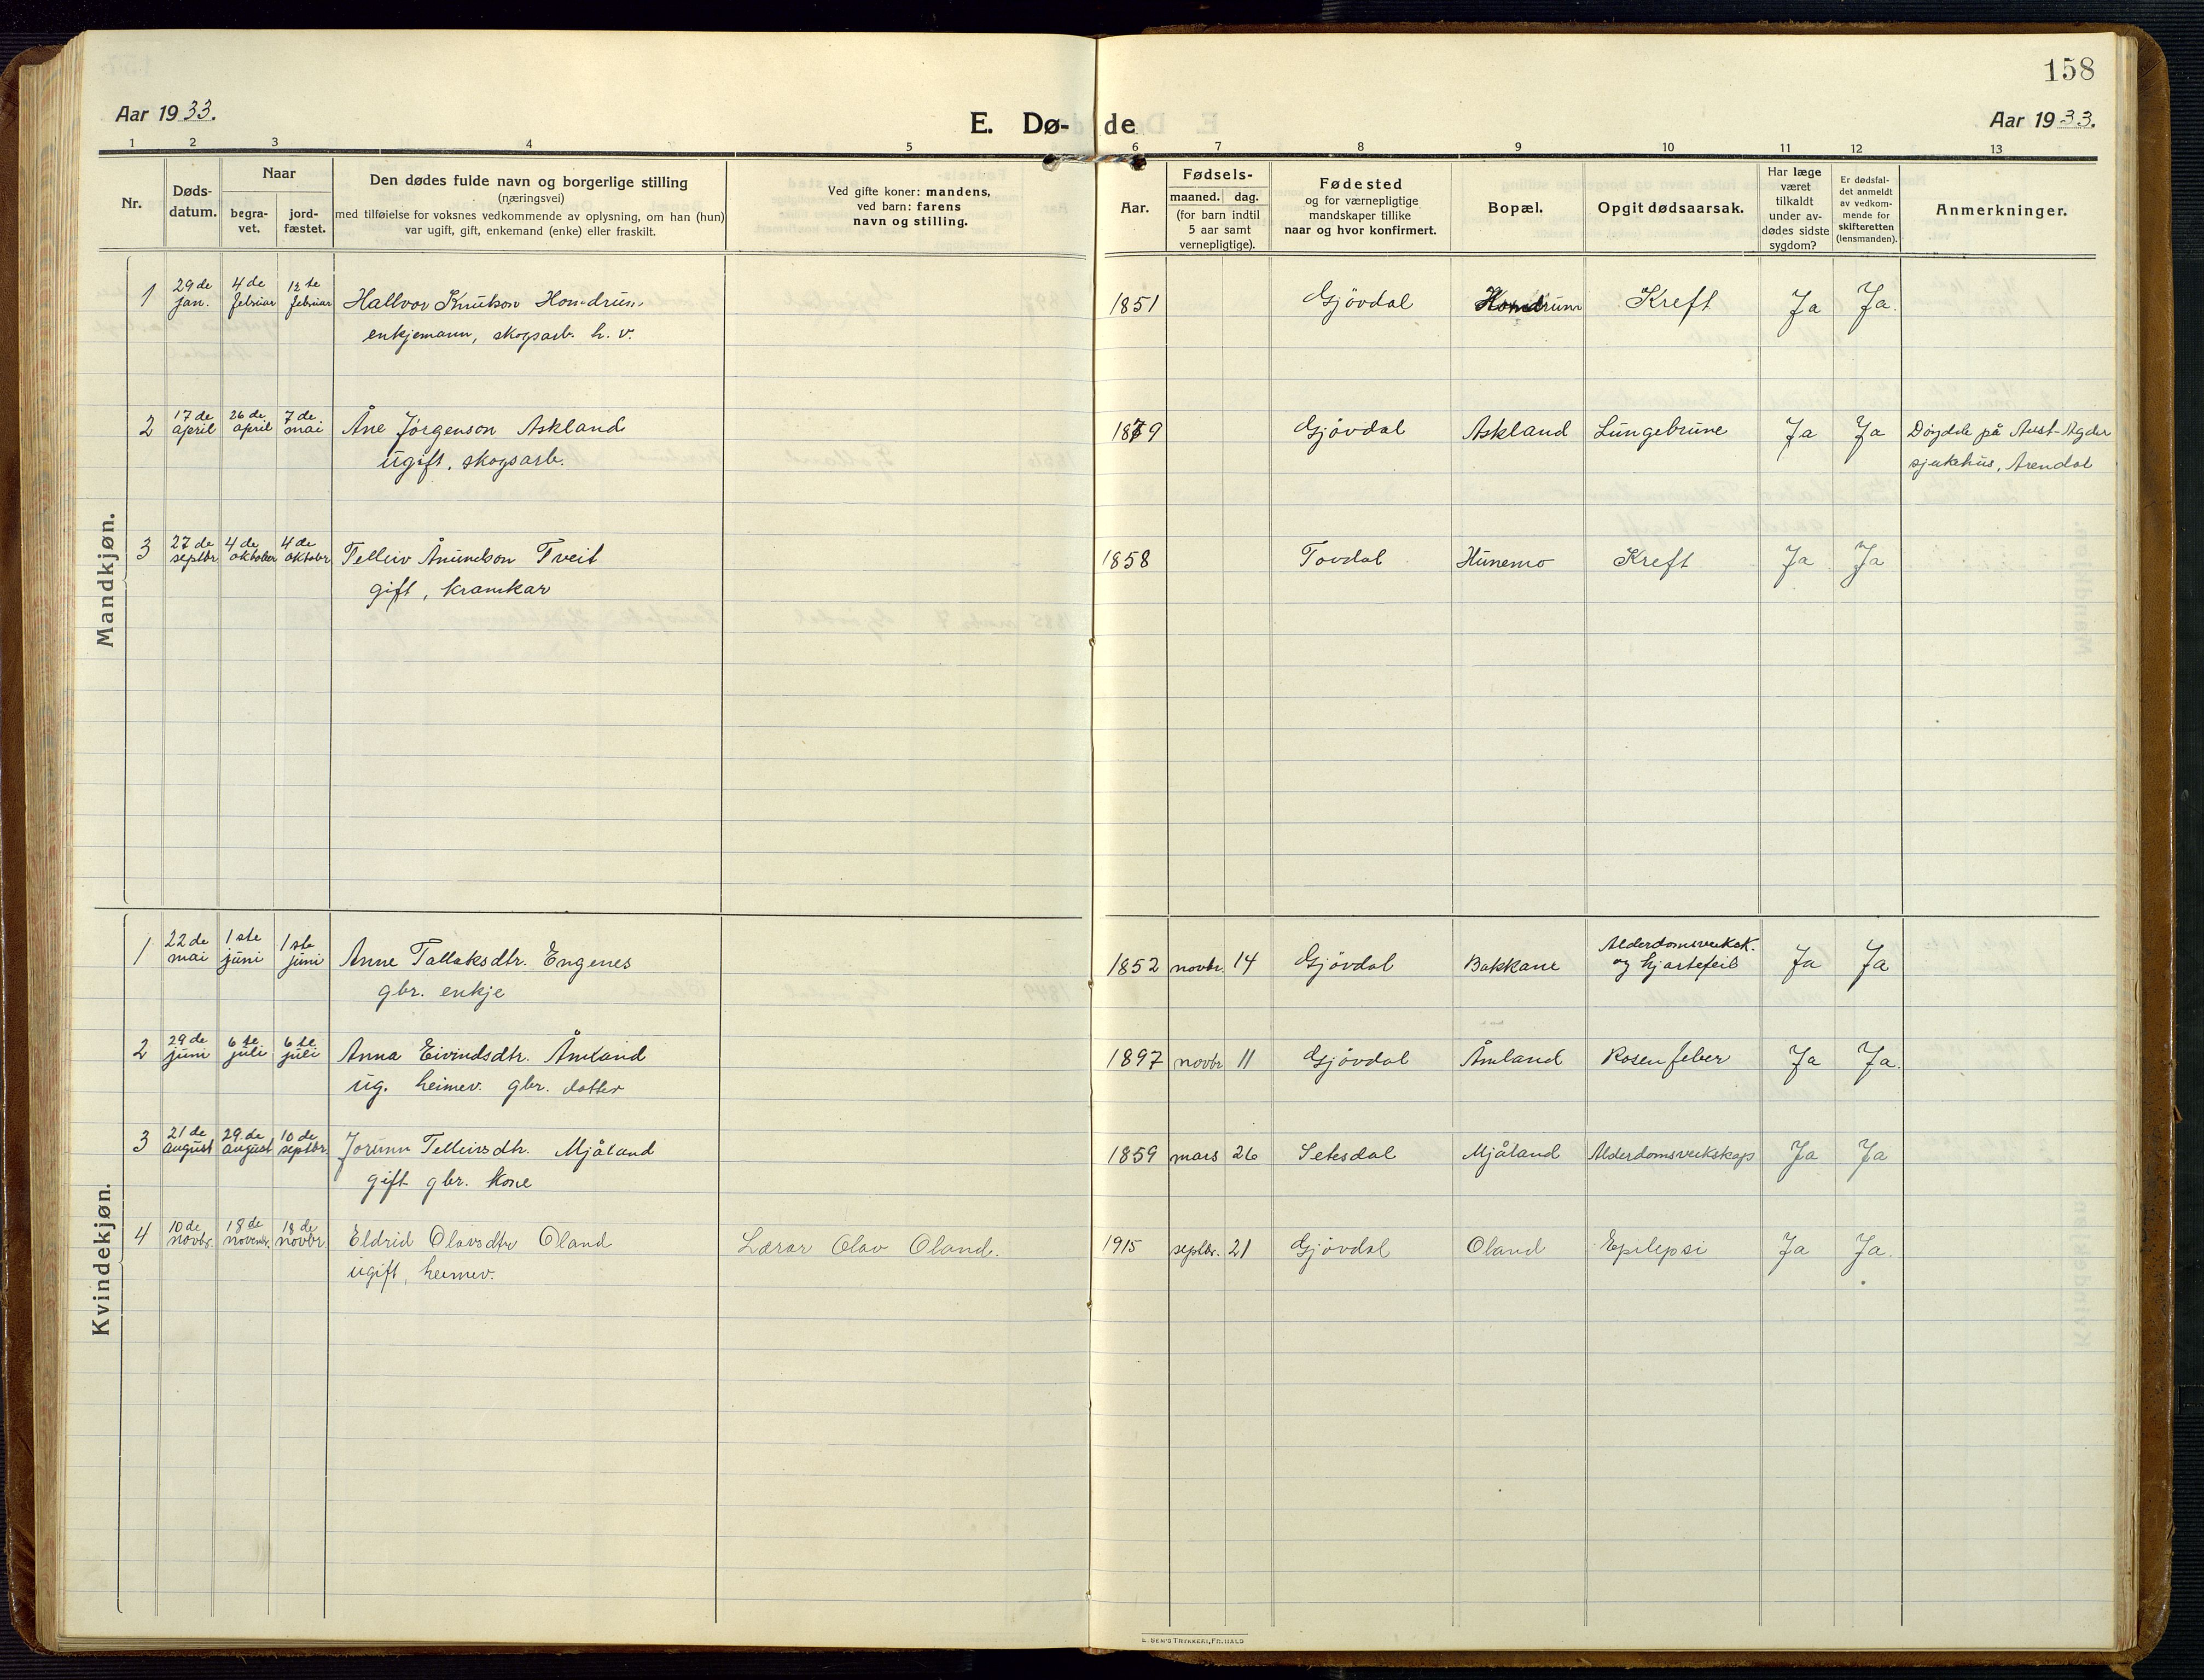 158
Aar 1933.
E. Dø-de
Aar 1933.
1 2 3 4 5 6 7 8 9 10 11 12 13
Nr.
Døds-
datum.
Naar
begra-
vet.
jord-
fæstet.
Den dødes fulde navn og borgerlige stilling
(næringsvei)
med tilføielse for voksnes vedkommende av oplysning, om han (hun)
var ugift, gift, enkemand (enke) eller fraskilt.
Ved gifte koner: mandens,
ved barn: farens
navn og stilling.
Aar.
Fødsels-
maaned. dag.
(for barn indtil
5 aar samt
vernepligtige).
Fødested
og for værnepligtige
mandskaper tillike
naar og hvor konfirmert.
Bopæl.
Opgit dødsaarsak.
Har læge
været
tilkaldt
under av-
dødes sidste
sygdom?
Er dødsfal-
det anmeldt
av vedkom-
mende for
skifteretten
(lensmanden).
Anmerkninger.
Mandkjøn.
1 29de jan. 4de februar 12te februar Hallvor Knutson Homdrum 1851 Gjövdal Homdrum Kreft Ja Ja.
enkjemann, skogsarb. h. v.
2 17de april 26de april 7de mai Åne Jörgenson Askland 1879 Gjövdal Askland Lungebrune Ja Ja Döydde på Aust-Agder
ugift, skogsarb. sjukehus, Arendal
3 27de septbr 4de oktober 4de oktobr Telleiv Ånundson Tveit 1858 Tovdal Hunemo Kreft Ja Ja
gift, kramkar
Kvindekjøn.
1 22de mai 1ste juni 1ste juni Anne Tallaksdtr. Engenes 1852 novbr. 14 Gjövdal Bakkane Alderdomsveiksk. og hjartefeil Ja Ja
gbr. enkje
2 29de juni 6te juli 6te juli Anna Eivindsdtr. Åmland 1897 novbr 11 Gjövdal Åmland Rosenfeber Ja Ja.
ug. heimev. gbr. dotter
3 21de august 29de august 10de septbr. Jorunn Telleivsdtr. Mjåland 1859 mars 26 Setesdal Mjåland Alderdomsveikskap Ja Ja
gift gbr. kone
4 10de novbr. 18de novembr. 18de novbr Eldrid Olavsdtr Oland Lærar Olav Oland. 1915 septbr. 21 Gjövdal Oland Epilepsi Ja Ja.
ugift, heimev.
E. SEM'S TRYKKERI, FR.HALD